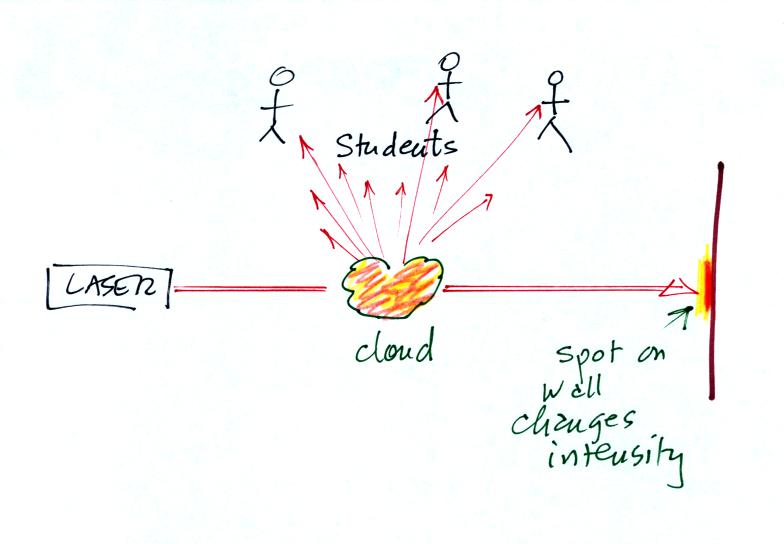 Students
LASER
cloud
spot on
wall
changes
intensity